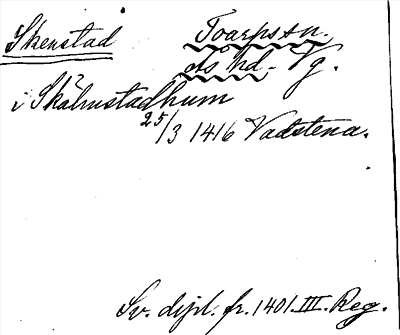 Skenstad Toarps sn.
Ås hd. Vg.
i Skälmstadhum
25/3 1416 Vadstena.
Sv. dipl. fr. 1401. III. Reg.